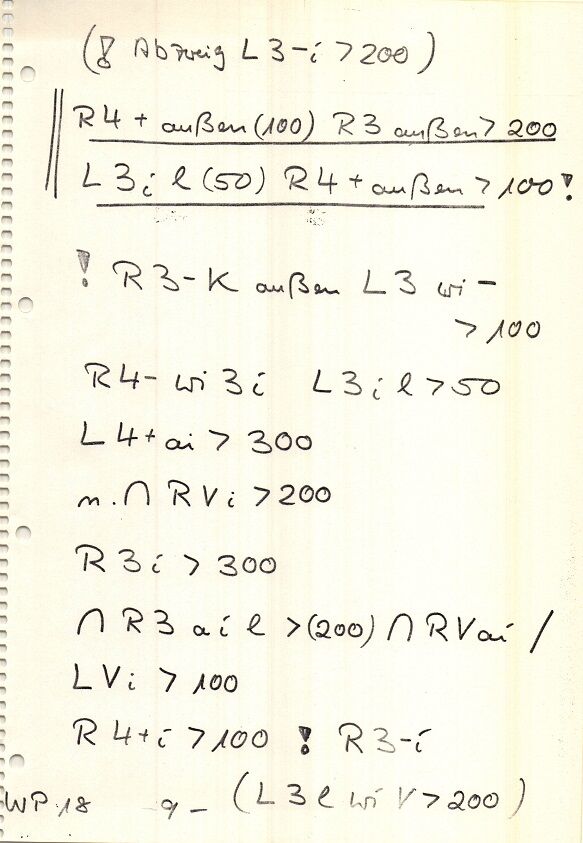 (! Abzweig L3-i > 200)
R4+ außen (100) R3 außen > 200
L3i l (50) R4+ außen > 100!
! R3-K außen L3 wi-
> 100
R4- wi 3i L3i l > 50
L4+ ai > 300
n. ∩ RVi > 200
R3i > 300
∩ R3 ai l > (200) ∩ RVai /
LVi > 100
R4+i > 100 ! R3-i
WP 18 -9- (L3 l wi V > 200)